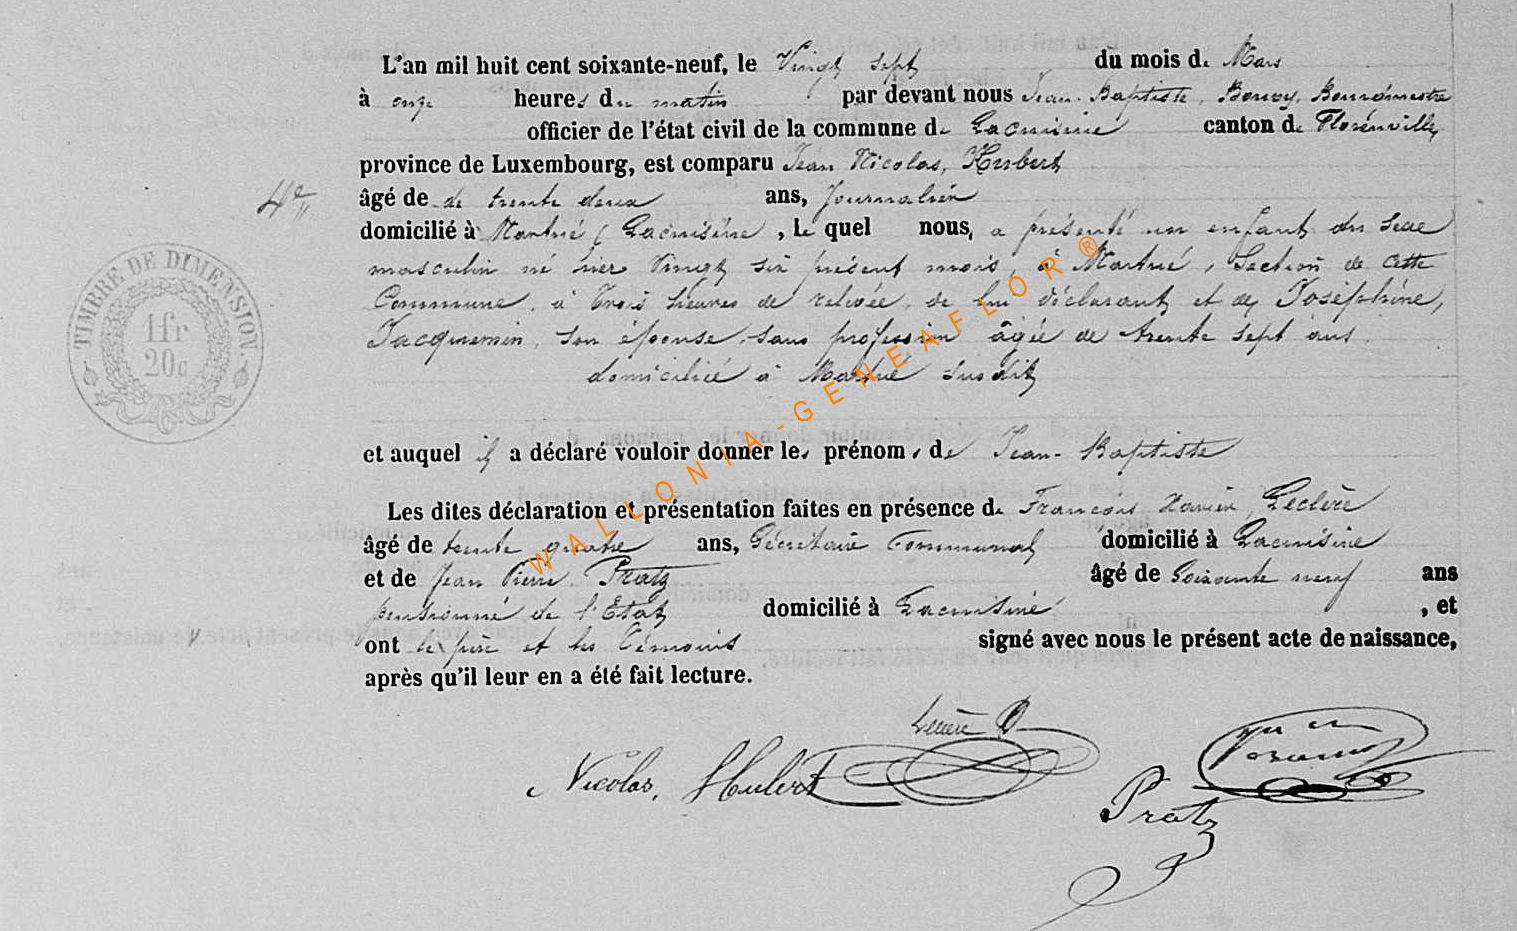 L'an mil huit cent soixante-neuf, le Vingt sept du mois de Mars
à onze heures du matin par devant nous Jean-Baptiste, Bouvy, Bourgmestre
officier de l'état civil de la commune de Lacuisine canton de Florenville,
province de Luxembourg, est comparu Jean Nicolas, Hubert
4e
âgé de de trente deux ans, Journalier
domicilié à Martué (Lacuisine, le quel nous, a présenté un enfant du sexe
masculin né hier Vingt six présent mois, à Martué, Section de cette
Commune, à trois heures de relevée, de lui déclarant et de Joséphine,
Jacquemin, son épouse, sans profession âgée de trente sept ans
domiciliée à Martué susdit
TIMBRE DE DIMENSION
1 fr
20c
et auquel il a déclaré vouloir donner les prénoms de Jean-Baptiste
Les dites déclaration et présentation faites en présence de Francois Xavier, Leclère
âgé de trente quatre ans, Sécretaire Communal domicilié à Lacuisine
et de Jean Pierre, Pratz âgé de Soixante neuf ans
pensionné de l'Etat domicilié à Lacuisine, et
ont le père et les témoins signé avec nous le présent acte de naissance,
après qu'il leur en a été fait lecture.
Leclère
Nicolas, Hubert
Pratz
WALLONIA-GENEAFLOR®